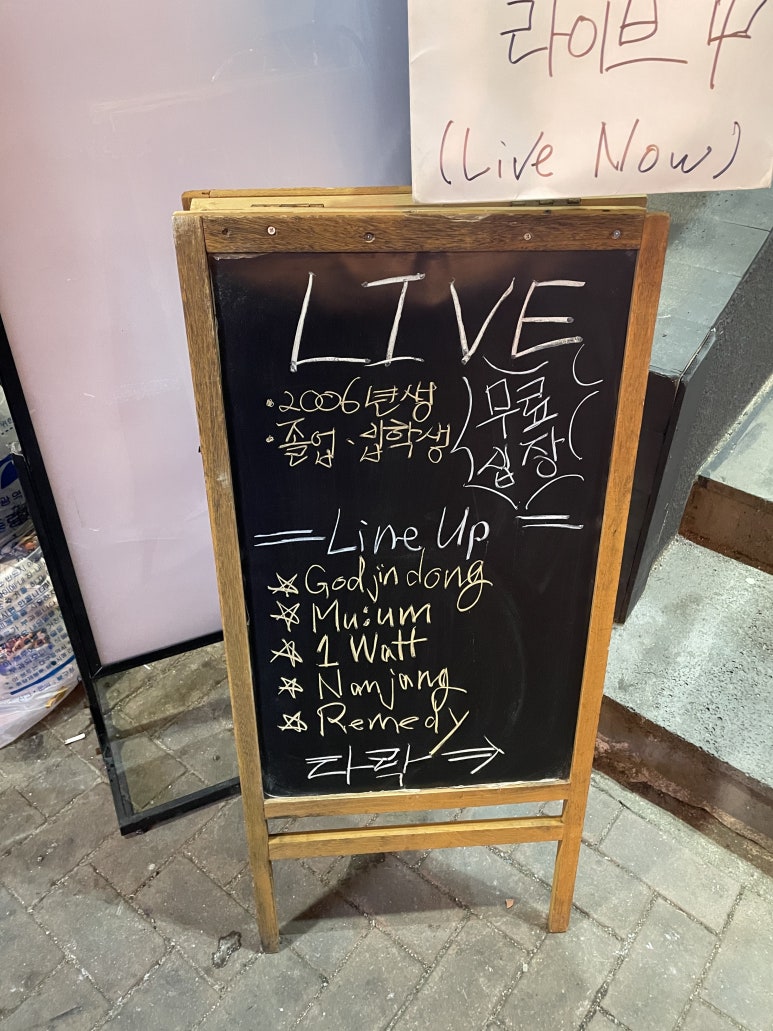 라이브 中
(Live Now)
LIVE
• 2006년생
• 졸업·입학생
무료
입장
= Line Up =
☆ Godjindong
☆ Mu:um
☆ 1 Watt
☆ Nanjang
☆ Remedy
타락 →